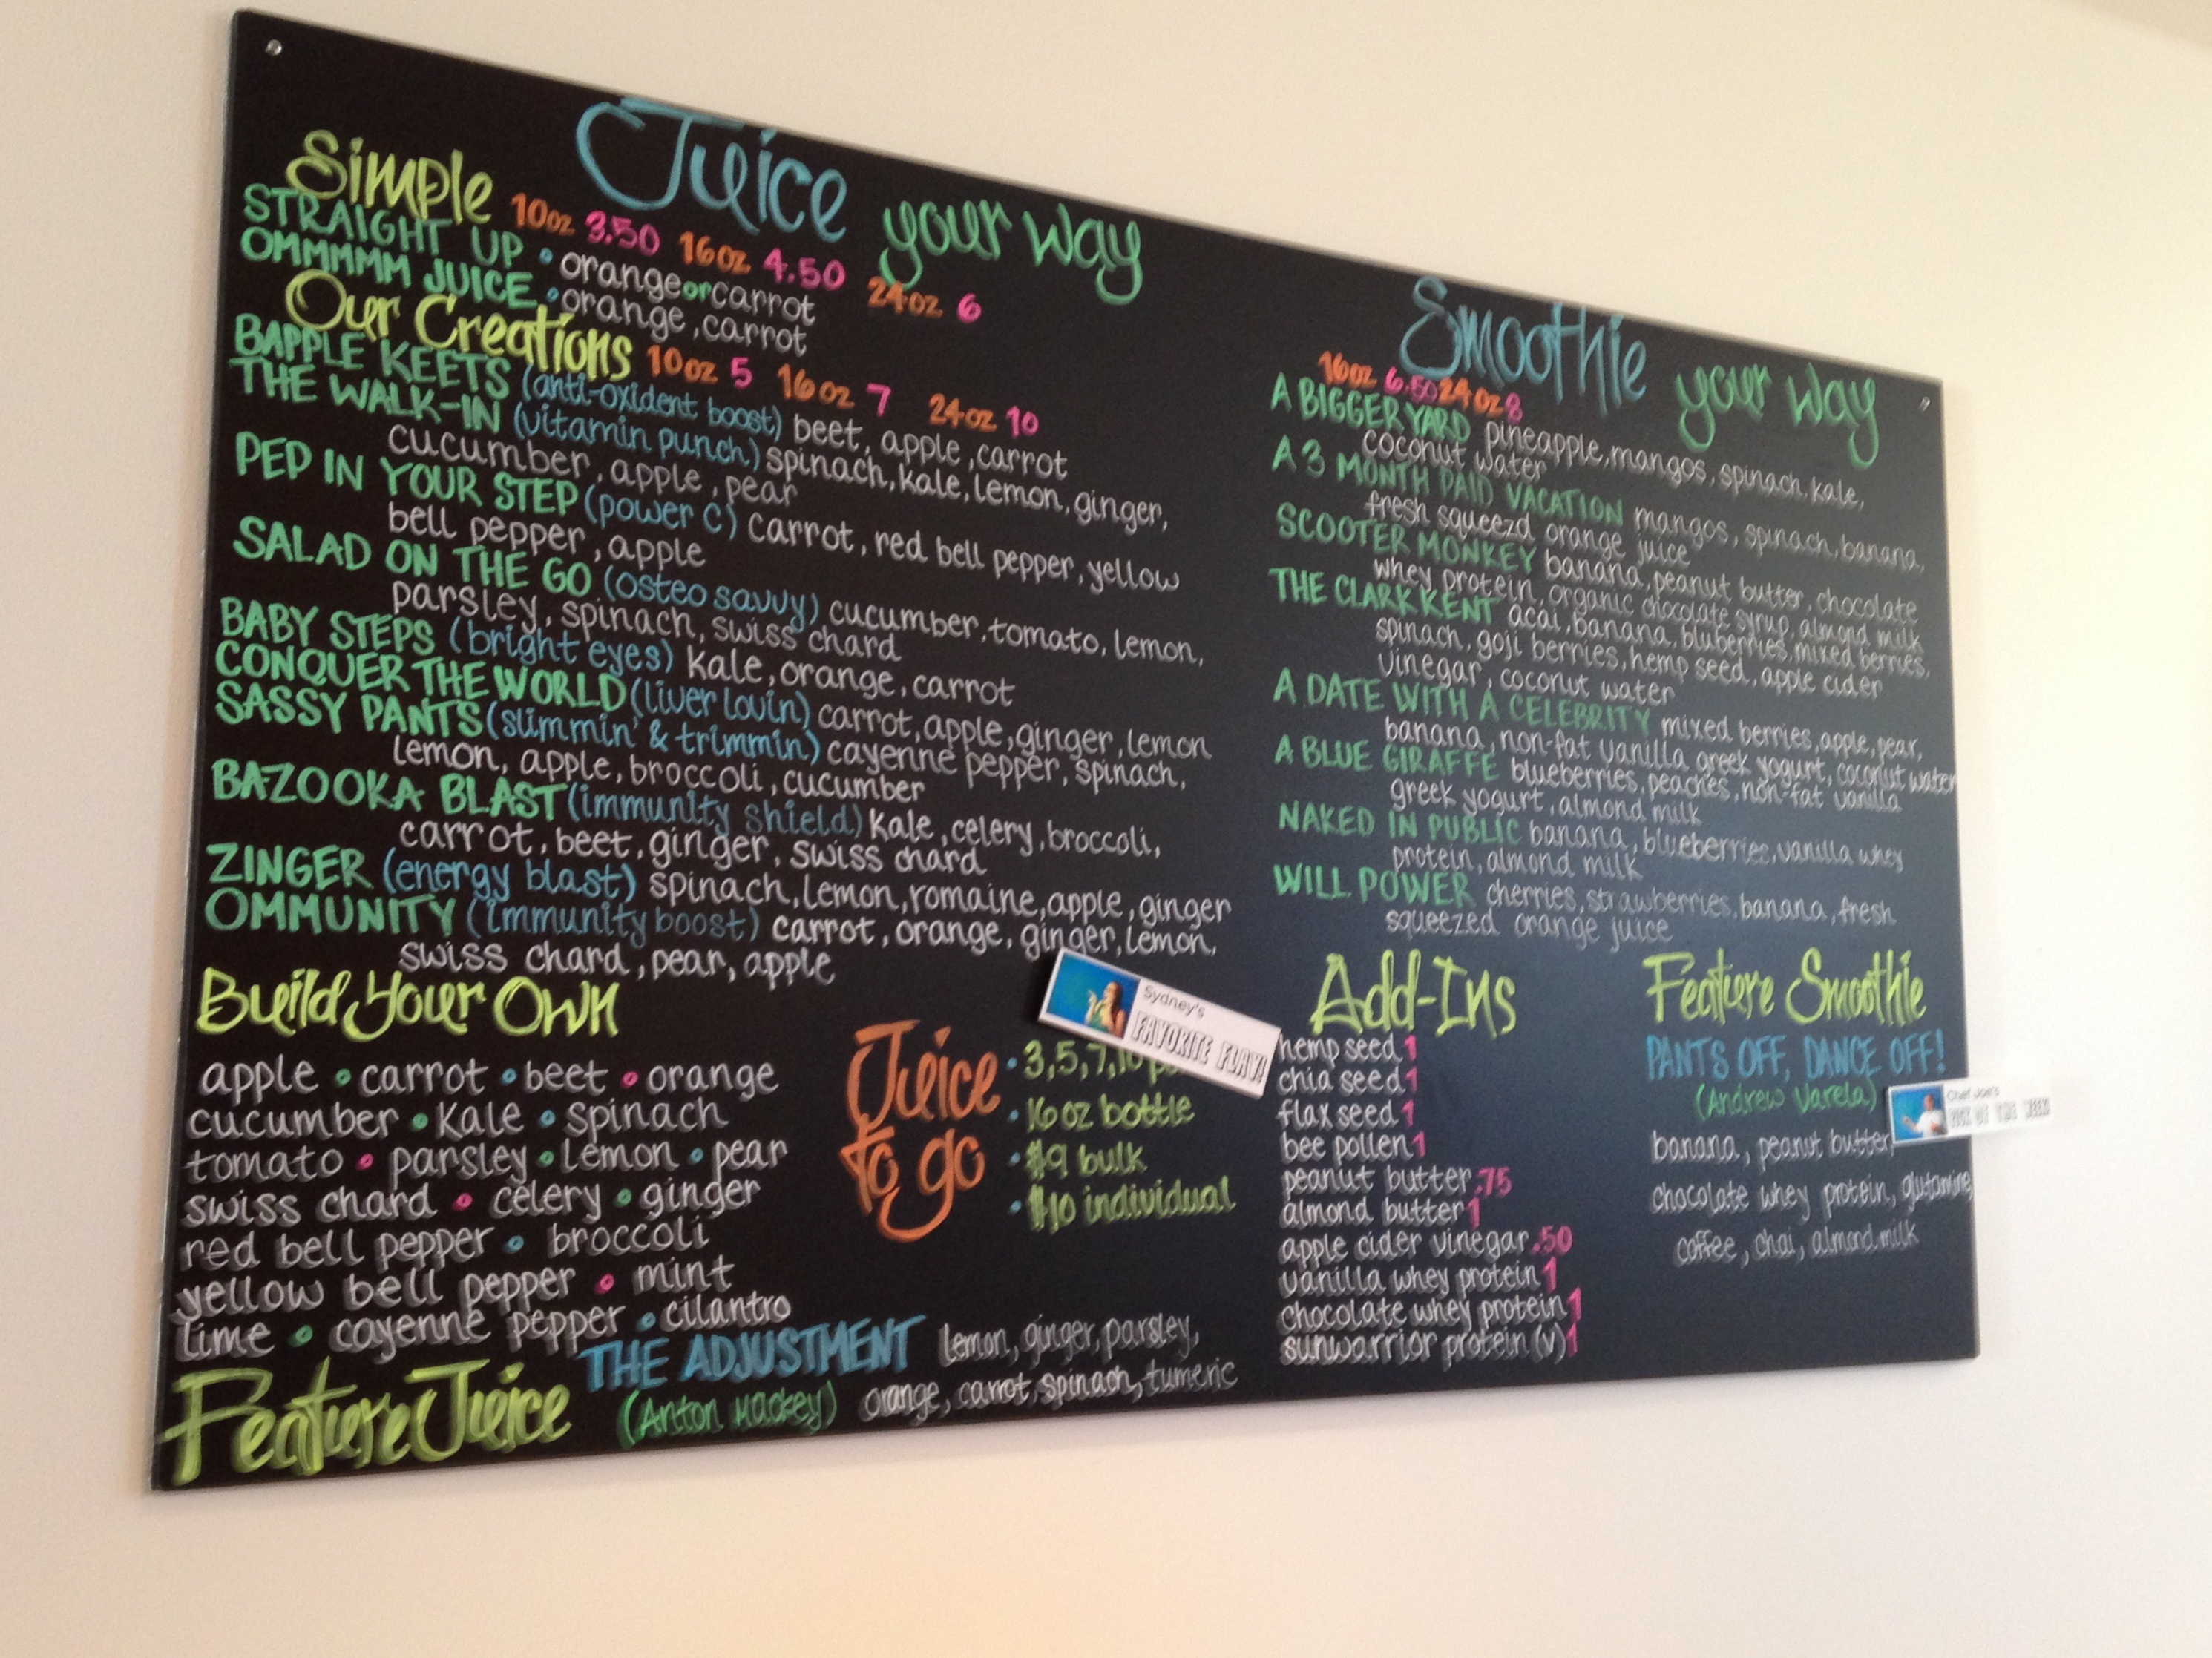 Juice your way
Simple 10oz 3.50 16oz 4.50 24oz 6
STRAIGHT UP • orange or carrot
OMMMMM JUICE • orange, carrot
Our Creations 10oz 5 16oz 7 24oz 10
BAPPLE KEETS (anti-oxident boost) beet, apple, carrot
THE WALK-IN (vitamin punch) spinach, kale, lemon, ginger,
cucumber, apple, pear
PEP IN YOUR STEP (power C) carrot, red bell pepper, yellow
bell pepper, apple
SALAD ON THE GO (osteo savvy) cucumber, tomato, lemon,
parsley, spinach, swiss chard
BABY STEPS (bright eyes) kale, orange, carrot
CONQUER THE WORLD (liver lovin) carrot, apple, ginger, lemon
SASSY PANTS (slimmin' & trimmin) cayenne pepper, spinach,
lemon, apple, broccoli, cucumber
BAZOOKA BLAST (immunity shield) kale, celery, broccoli,
carrot, beet, ginger, swiss chard
ZINGER (energy blast) spinach, lemon, romaine, apple, ginger
OMMUNITY (immunity boost) carrot, orange, ginger, lemon,
swiss chard, pear, apple
Build Your Own
apple • carrot • beet • orange
cucumber • kale • spinach
tomato • parsley • lemon • pear
swiss chard • celery • ginger
red bell pepper • broccoli
yellow bell pepper • mint
lime • cayenne pepper • cilantro
Juice to go
• 3,5,7,10
• 16 oz bottle
• $9 bulk
• $10 individual
Sydney's
FAVORITE FLAV!
Feature Juice
THE ADJUSTMENT lemon, ginger, parsley,
(Anton Mackey) orange, carrot, spinach, tumeric
Smoothie your way
16oz 6.50 24oz 8
A BIGGER YARD pineapple, mangos, spinach, kale,
coconut water
A 3 MONTH PAID VACATION mangos, spinach, banana,
fresh squeezd orange juice
SCOOTER MONKEY banana, peanut butter, chocolate
whey protein, organic chocolate syrup, almond milk
THE CLARK KENT acai, banana, bluberries, mixed berries,
spinach, goji berries, hemp seed, apple cider
vinegar, coconut water
A DATE WITH A CELEBRITY mixed berries, apple, pear,
banana, non-fat vanilla greek yogurt, coconut water
A BLUE GIRAFFE blueberries, peaches, non-fat vanilla
greek yogurt, almond milk
NAKED IN PUBLIC banana, blueberries, vanilla whey
protein, almond milk
WILL POWER cherries, strawberries, banana, fresh
squeezed orange juice
Add-Ins
hemp seed 1
chia seed 1
flax seed 1
bee pollen 1
peanut butter .75
almond butter 1
apple cider vinegar .50
vanilla whey protein 1
chocolate whey protein 1
sunwarrior protein (v) 1
Feature Smoothie
PANTS OFF, DANCE OFF!
(Andrew Varela)
Chef Joe's
banana, peanut butter
chocolate whey protein, glutamine
coffee, chai, almond milk